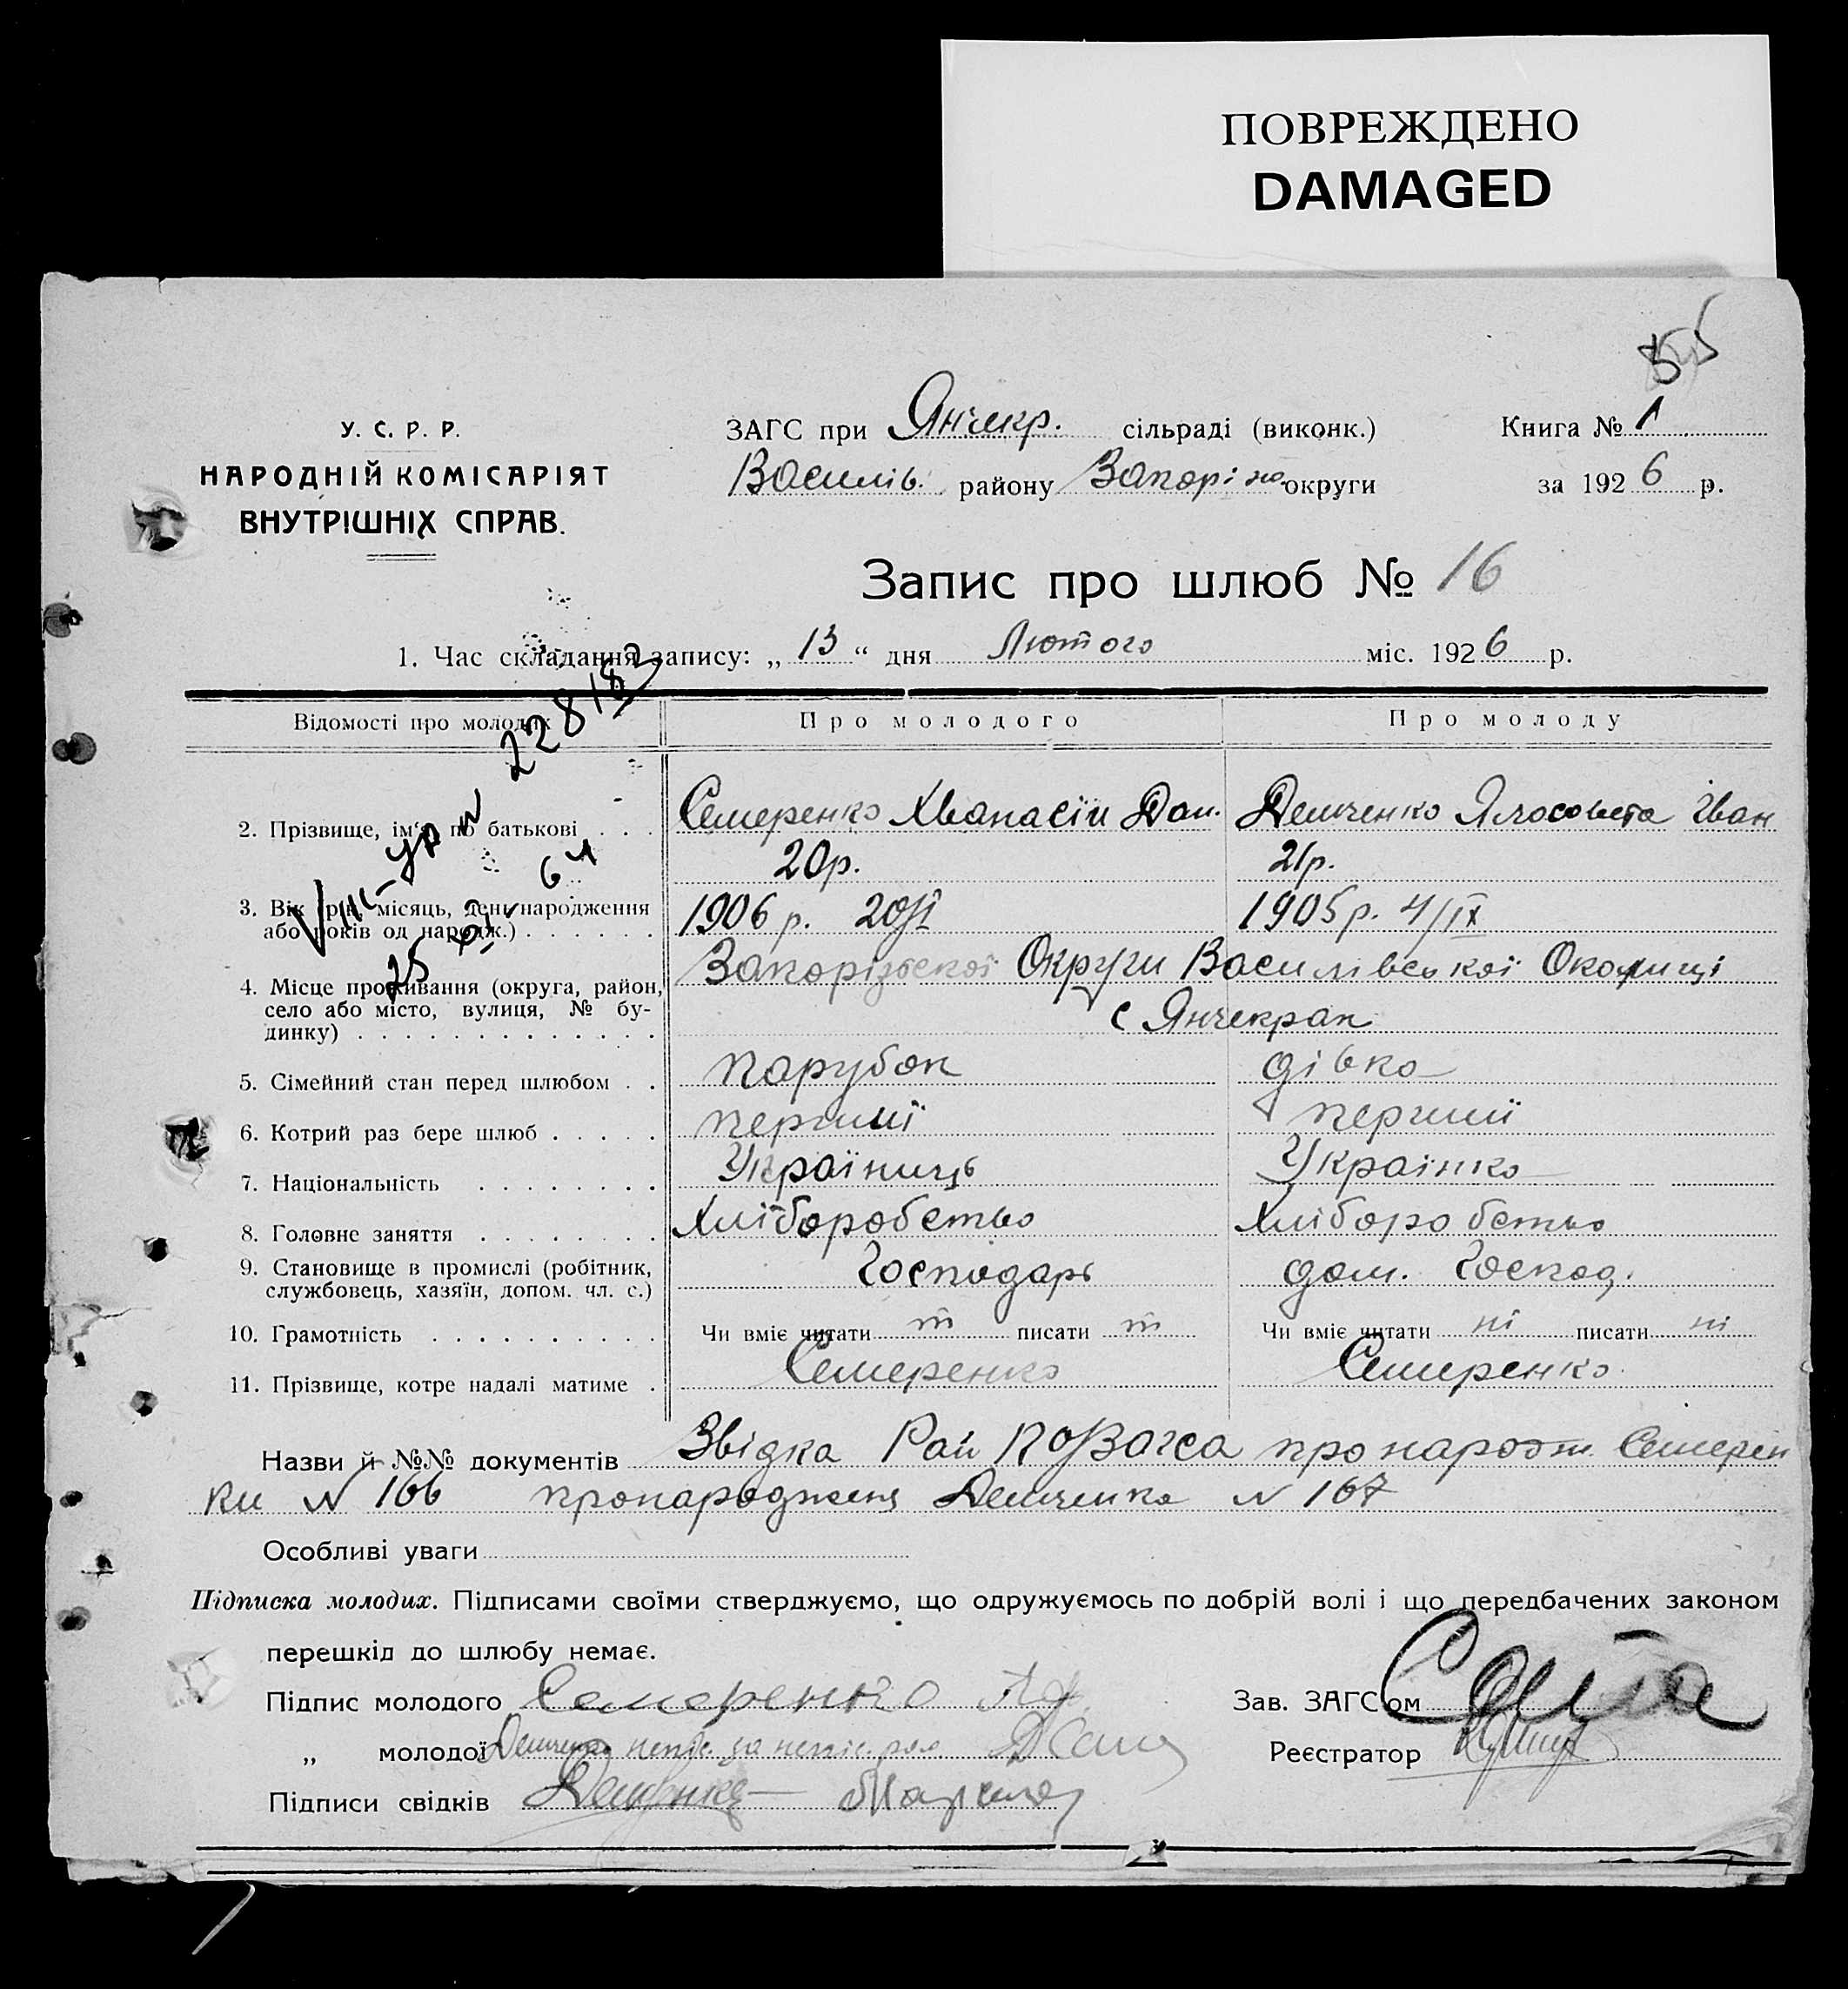 ПОВРЕЖДЕНО
DAMAGED
У. С. Р. Р.
НАРОДНІЙ КОМІСАРІЯТ
ВНУТРІШНІХ СПРАВ.
ЗАГС при Янчекр. сільраді (виконк.)
Василів. району Запоріж. округи
Книга № 1
за 1926 р.
Запис про шлюб № 16
1. Час складання запису: „ 13 “ дня Лютого міс. 1926 р.
Відомості про молодих Про молодого Про молоду
228182
2. Прізвище, ім'я, по батькові . . . Семеренко Хванасій Дан. Демченко Ялосовета Іван
20р. 21р.
3. Вік (рік, місяць, день народження 1906 р. 1905 р. 4/IX
або років од народж.) . . . . . .
4. Місце проживання (округа, район, Запорізської Округи Василівської Околиці
село або місто, вулиця, № бу-
динку) . . . . . . . . . . . . с Янчекрак
5. Сімейний стан перед шлюбом . . парубок дівка
6. Котрий раз бере шлюб . . . . . перший перший
7. Національність . . . . . . . . Україниць Українка
8. Головне заняття . . . . . . . . Хліборобство Хліборобство
9. Становище в промислі (робітник, Господарь дом. Господ.
службовець, хазяїн, допом. чл. с.)
10. Грамотність . . . . . . . . . . Чи вміє читати писати Чи вміє читати ні писати ні
11. Прізвище, котре надалі матиме . Семеренко Семеренко
Назви й №№ документів Звідка Рай про народж. Семерен
ки N 166 про народженя Демченка N 167
Особливі уваги
Підписка молодих. Підписами своїми стверджуємо, що одружуємось по добрій волі і що передбачених законом
перешкід до шлюбу немає.
Підпис молодого Семеренко Аф.
„ молодої Демченко
Підписи свідків
Зав. ЗАГСом
Реєстратор